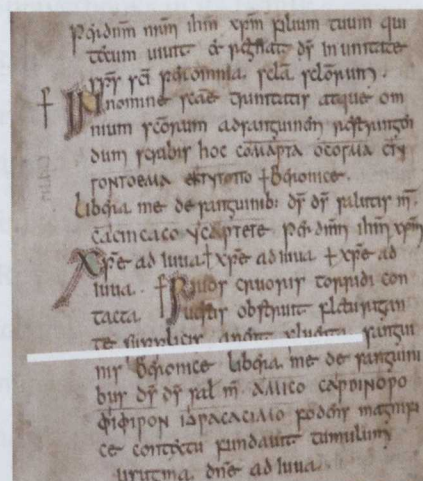 Per dnm nrm ihm xpm filium tuum qui
tecum uiuit & regnat ds in unitate
sps sci per omnia. scla sclorum.
+ In nomine scae trinitatis atque om
nium scorum ad sanguinem restringen
dum scribis hoc COMAPTA OCOΓMA CTY
ΓONTOEMA EKTYTOΠO + beronice.
Libera me de sanguinib: ds ds salutis m.
CACINCACO YCAPTETE per dnm ihm xpm
Xpe adiuua + xpe adiuua + xpe ad
iuua. + Riuos cruoris torridi con
tacta uestis obstruit fletu rigan
te supplicis arent fluenta sangui
nis beronice libera me de sanguini
bus ds ds sal m. AMICO CAPDINOPO
ΦIΦIPON IΔPACACIMO fodens magnifi
ce contextu fundauit tumulum
dne adiuua